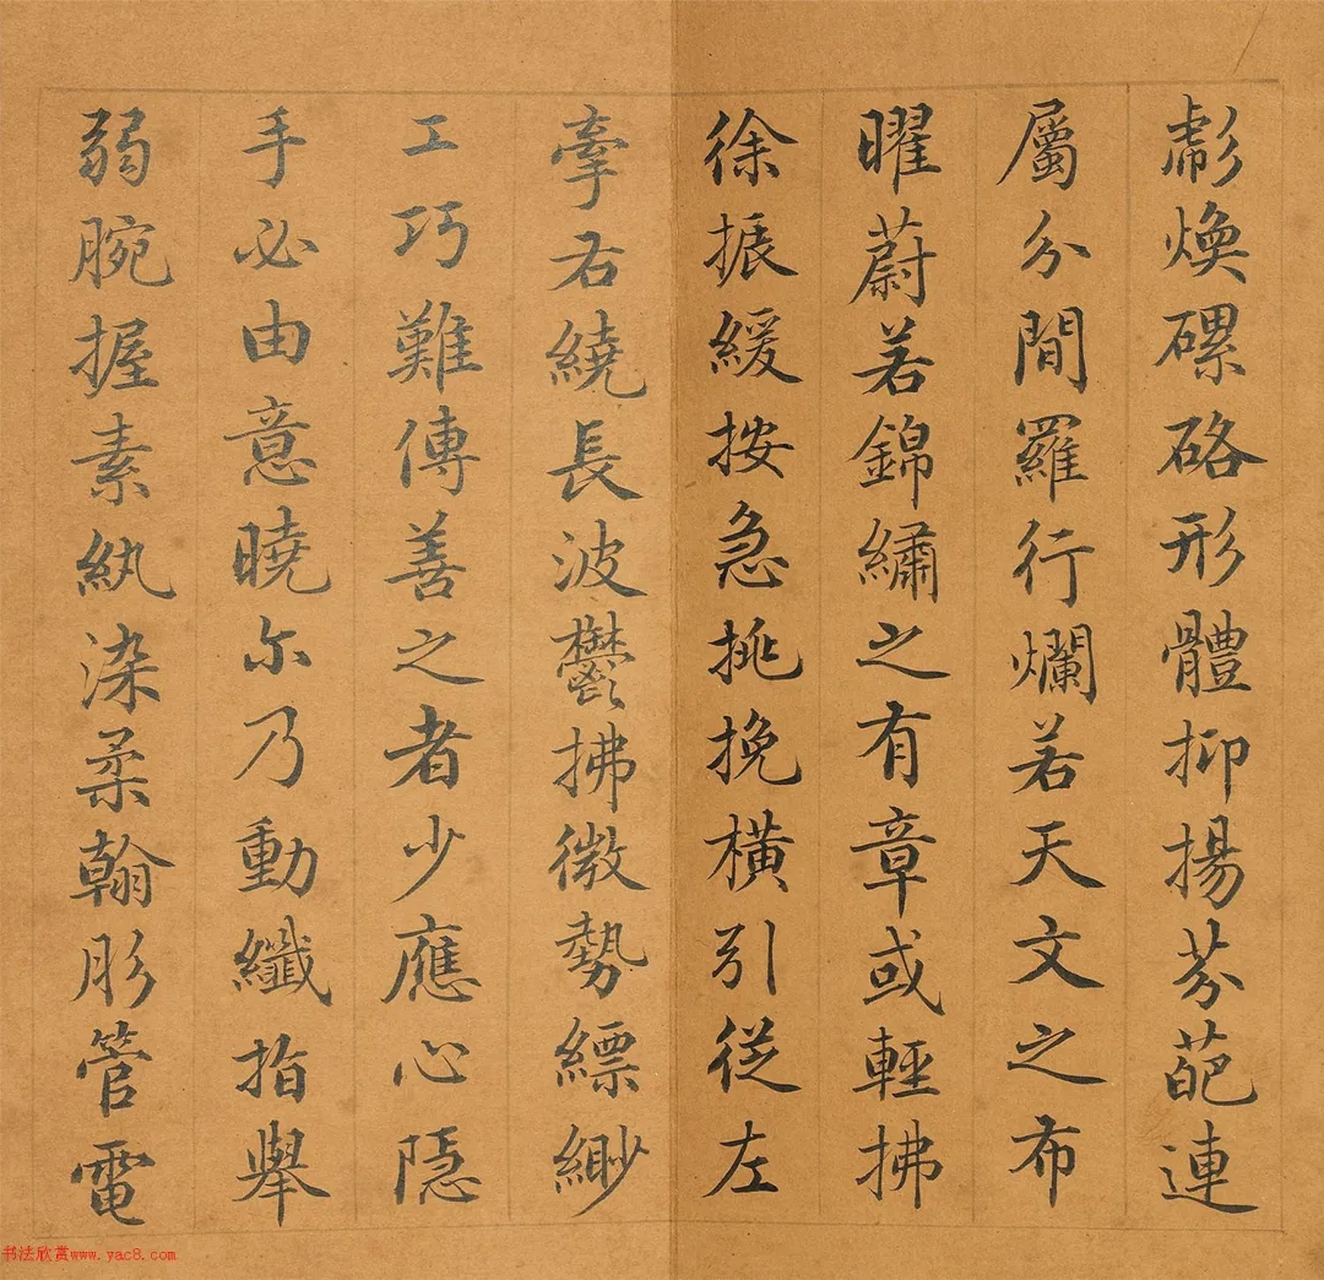 彪煥磥硌形體抑揚芬葩連
屬分間羅行爛若天文之布
曜蔚若錦繡之有章或輕拂
徐振緩按急挑挽橫引從左
牽右繞長波鬱拂微勢縹緲
工巧難傳善之者少應心隱
手必由意曉尔乃動纖指舉
弱腕握素紈染柔翰彤管電
书法欣赏www.yac8.com